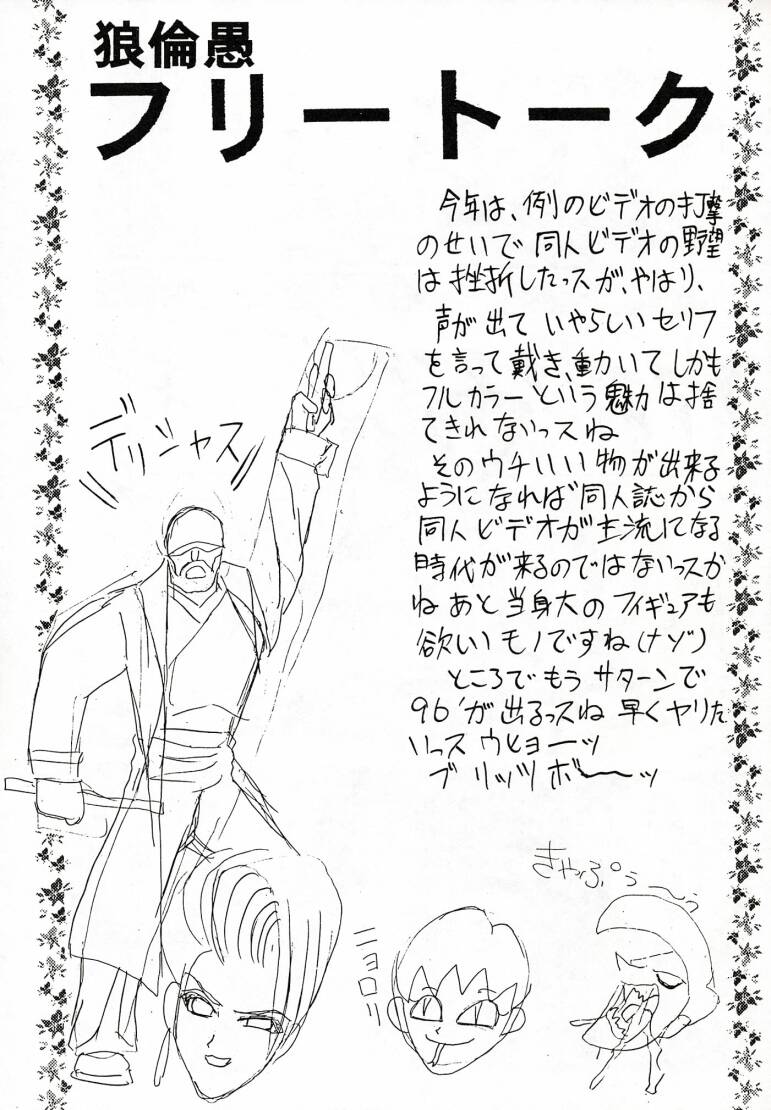 狼倫愚
フリートーク
今年は、例のビデオの打撃
のせいで同人ビデオの野望
は挫折したっスが、やはり、
声が出ていやらしいセリフ
を言って戴き、動いてしかも
フルカラーという魅力は捨
てきれないっスね
そのウチいい物が出来る
ようになれば同人誌から
同人ビデオが主流になる
時代が来るのではないっスか
ねあと当身大のフィギュアも
欲いいモノですね(ナゾ)
ところでもうサターンで
96'が出るっスね早くヤリた
いっスウヒョーッ
ブリッツボーーッ
デリシャス
ニョロリ
きゃふぅーぅ